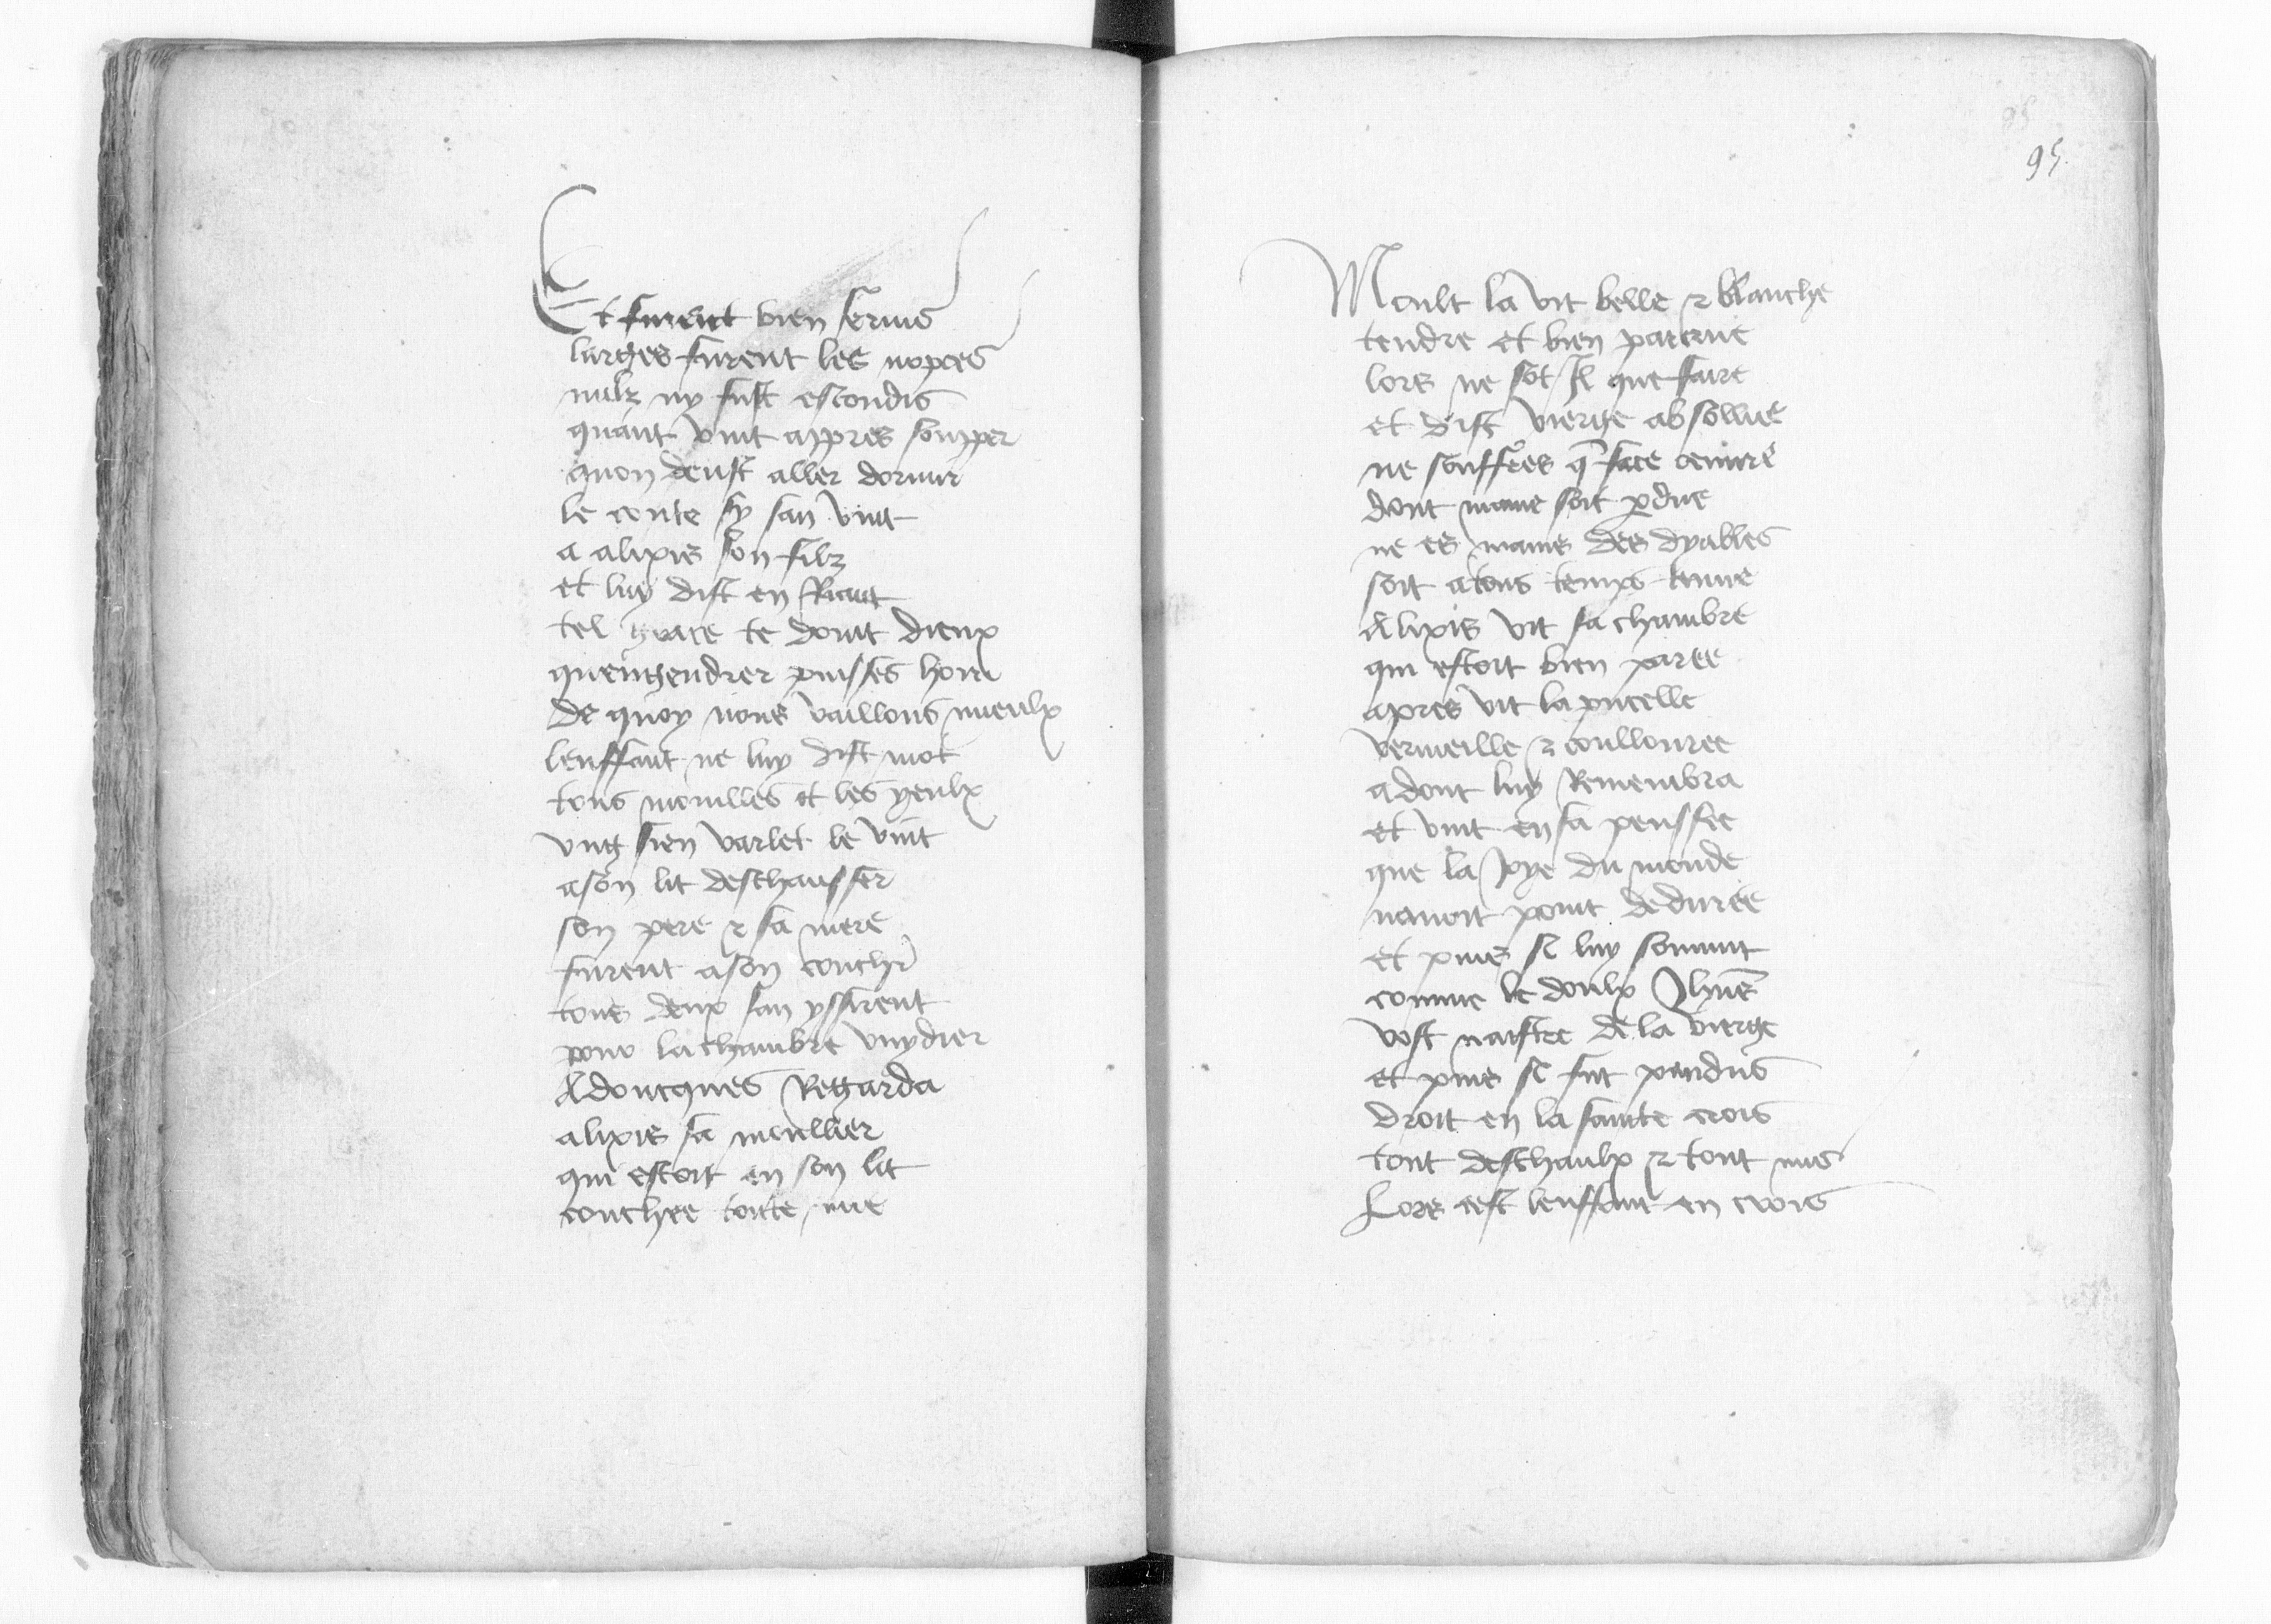 Et furent bien seruis
larges furent les nopces
nulz ny fust escondis
quant vint appres soupper
quon deust aller dormir
le conte sy san vint
a alixis son filz
et luy dist en Riant
tel grace te doint dieux
quengendrer puisses hoir
de quoy nous vaillons mieulx
lenffant ne luy dist mot
tous moulles et les yeulx
vng sien varlet le vint
ason lit deschausser
son pere & sa mere
furent ason couchr
tous deux san yssirent
pour lachambre vuydier
Adoncques Regarda
alixis sa moullier
qui estoit en son lit
couchee toute nue
95
Moult la vit belle & blanche
tendre et bien
lors ne sot Il que faire
et dist vierge absollue
ne souffres q face
dont mame soit pdue
ne es mains des dyables
soit atous temps tenue
Alixis vit sa chambre
qui estoit bien paree
apres vit la pucelle
vermeille & coullouree
adont luy Remembra
et vint en sa penssee
que la Joye du monde
nauoit point deduree
et puis se luy souuint
comme le doulx Jhus
vost naistre de la vierge
et puis se fut pandus
droit en la sainte crois
tout deschaulx & tout nus
Lors cest lenffant en crois